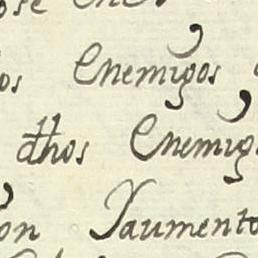 os Enemigos
dhos Enemig
on Xaumento